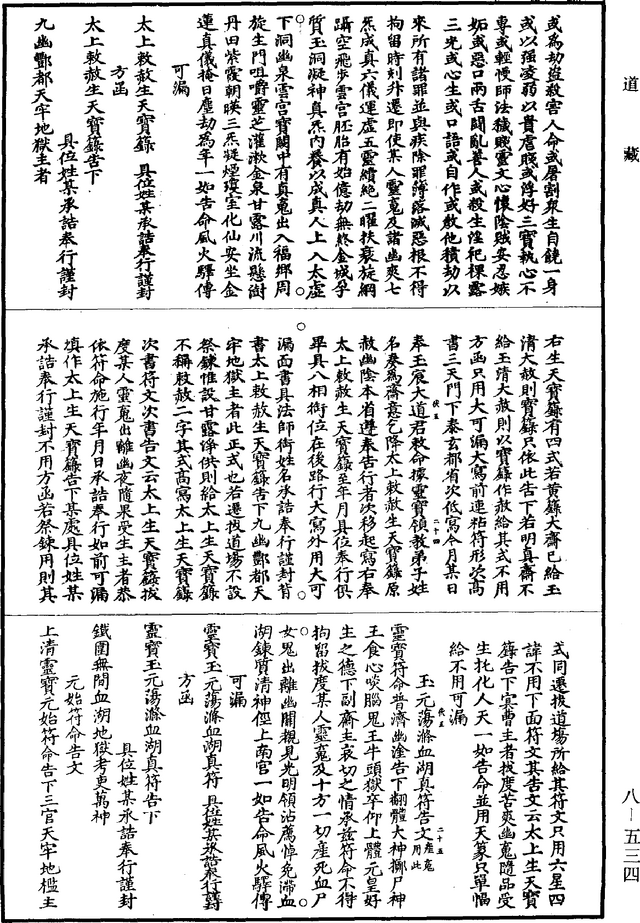 道藏
或為劫盜殺害人命或屠割眾生自饒一身
或以強凌弱以貴虐賤或侮好三寶執心不
專或輕慢師法穢賤靈文心懷陰賊安忍嫉
妬或惡口兩舌鬪亂善人或殺生淫祀裸露
三光或心生或口語或自作或教他積劫以
來所有諸罪並與疾除罪簿落滅惡根不得
拘留時刻升遷即使某人靈䰟及諸幽爽七
炁成真六儀運虛五靈續絕二曜扶衰旋綱
躡空飛步雲宮胚胎有始億劫無終金城孚
質玉洞凝神真炁內養以成真人上入太虛
下洞幽泉雲宮寶闕中有真䰟出入福鄉周
旋生門咀嚼靈芝灌漱金泉甘露川流懸澍
丹田紫霞朝暎三炁凝煙瓊室化仙安坐金
蓮真儀掩日塵劫為年一如告命風火驛傳
可漏
太上敕赦生天寶籙 具位姓某承誥奉行謹封
方函
太上敕赦生天寶籙告下
具位姓某承誥奉行謹封
九幽酆都天牢地獄主者
右生天寶籙有四式若黃籙大齋已給玉
清大赦則寶籙只依此告下若明真齋不
給玉清大赦則以寶籙作赦給其式不用
方函只用大可漏大寫前連粘符形次高
書三天門下泰玄都省次低寫今月某日
奉玉宸大道君敕命據靈寶領教弟子姓
名奏為齋意乞降太上敕赦生天寶籙原
赦幽陰本省遵奉告行者次移起寫右奉
太上敕赦生天寶籙至年月具位奉行俱
畢具八相銜位在後路行大寫外用大可
漏面書具法師銜姓名承誥奉行謹封背
書太上敕赦生天寶籙告下九幽酆都天
牢地獄主者此正式也若遷拔道場不設
祭鍊惟設甘露淨供則給太上生天寶籙
不稱敕赦二字其式高寫太上生天寶籙
次書符文次書告文云太上生天寶籙拔
度某人靈䰟出離幽夜隨果受生主者恭
依符命施行年月日承誥奉行如前可漏
填作太上生天寶籙告下某處具位姓某
承誥奉行謹封不用方函若祭鍊用則其
式同遷拔道場所給其符文只用六星四
諱不用下面符文其告文云太上生天寶
籙告下冥曹主者拔度苦爽幽䰟隨品受
生托化人天一如告命並用天篆只單幅
給不用可漏
玉元蕩滌血湖真符告文產䰟用此
靈寶符命普濟幽塗告下翻體大神擲尸神
王食心啖腦鬼王牛頭獄卒仰上體元皇好
生之德下副齋主哀切之情承茲符命不得
拘留拔度某人靈䰟及十方一切產死血尸
女鬼出離幽關覩見光明領沾薦悼免滯血
湖鍊質清神徑上南宮一如告命風火驛傳
可漏
靈寶玉元蕩滌血湖真符 具位姓某承誥奉行謹封
方函
靈寶玉元蕩滌血湖真符告下
具位姓某承誥奉行謹封
鐵圍無間血湖地獄考吏萬神
元始符命告文
上清靈寶元始符命告下三官天牢地檻主
八—五三四